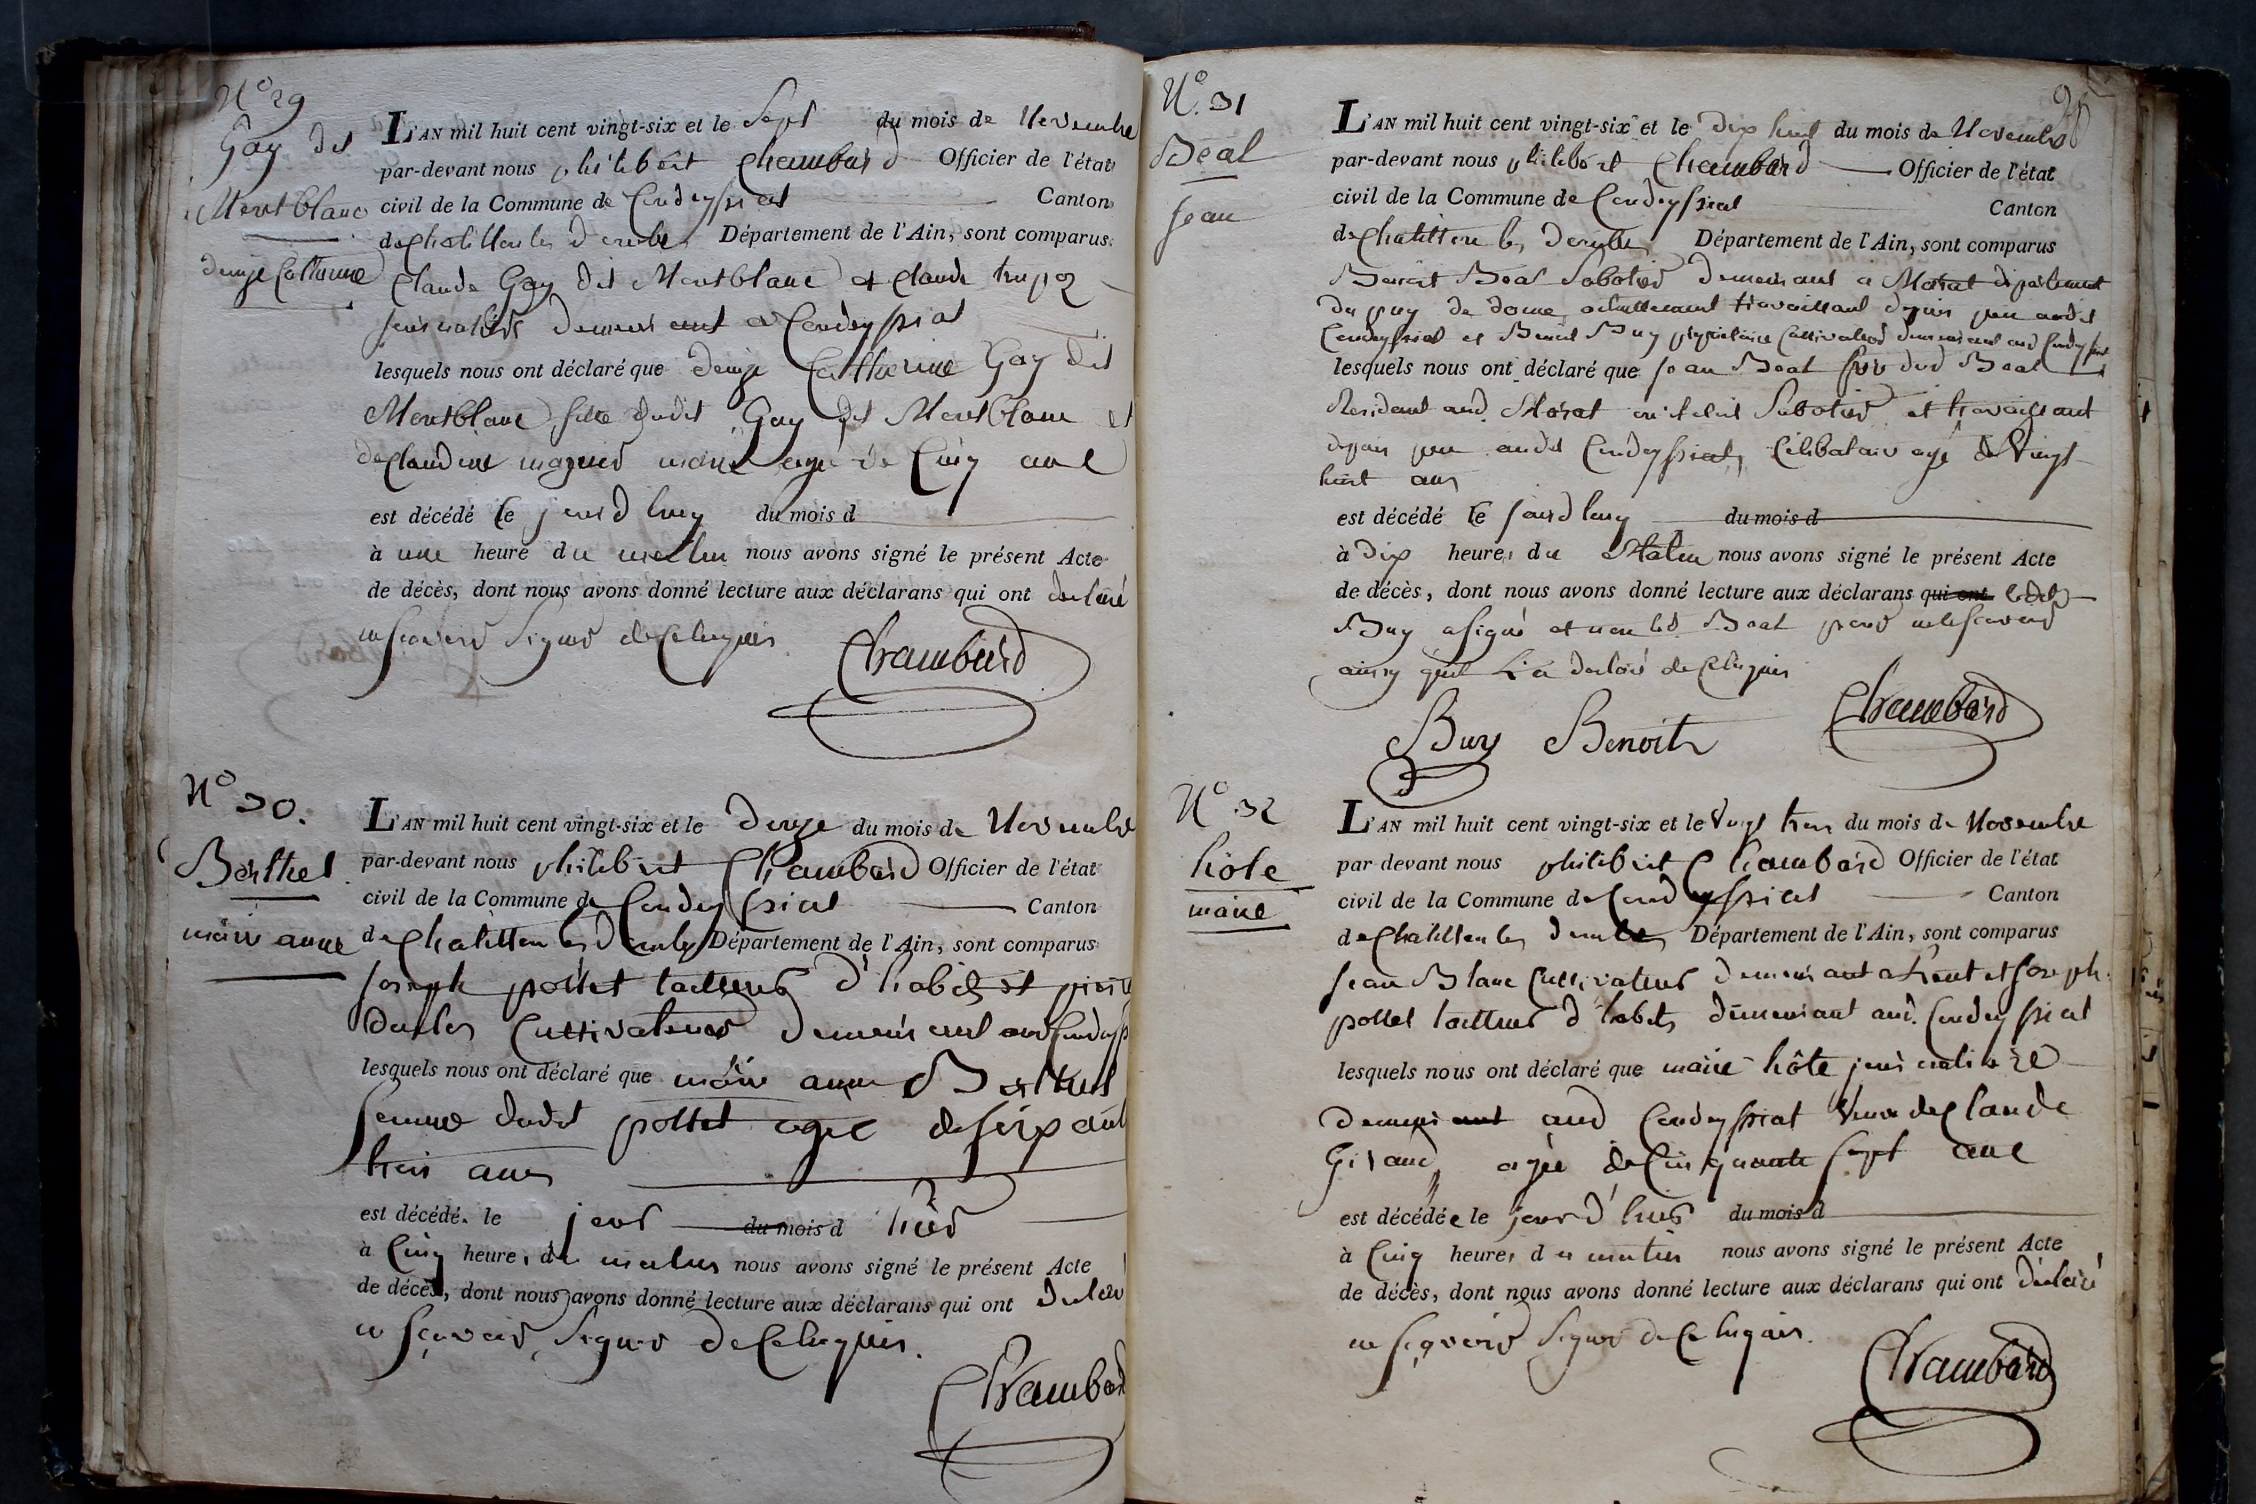 N° 29
Gay dit
Montblanc
denize Catherine
L'AN mil huit cent vingt-six et le Sept du mois de Novembre
par-devant nous philibert Chambard Officier de l'état
civil de la Commune de Condeyssiat Canton
de Chatillon les dombes Département de l'Ain, sont comparus
Claude Gay dit Montblanc et Claude
journaliers demeurant a Condeyssiat
lesquels nous ont déclaré que denize Catherine Gay dit
Montblanc fille dudit Gay dit Montblanc et
de Claudine marié agé de Cinq ans
est décédé le jourd huy du mois d
à une heure du matin nous avons signé le présent Acte
de décès, dont nous avons donné lecture aux déclarans qui ont declaré
ne scavoir signer de Ce Requis
Chambard
N° 30.
Berthet
marie anne
L'AN mil huit cent vingt-six et le douze du mois de Novembre
par-devant nous philibert Chambard Officier de l'état
civil de la Commune de Condeyssiat Canton
de Chatillon les dombes Département de l'Ain, sont comparus
joseph pottet tailleur d'habits et
Cultivateur demeurant aud Condeyss
lesquels nous ont déclaré que marie anne Berthet
femme dudit pottet agée de soixante
trois ans
est décédé. le jour du mois d hier
à Cinq heure, du matin nous avons signé le présent Acte
de décès, dont nous avons donné lecture aux déclarans qui ont declaré
ne sçavoir signer de Ce Requis.
Chambard
N°. 31
Béal
jean
L'AN mil huit cent vingt-six et le dix huit du mois de Novembre
par-devant nous philibert Chambard Officier de l'état
civil de la Commune de Condeyssiat Canton
de Chatillon les dombes Département de l'Ain, sont comparus
Benoit Béal Sabotier demeurant a Marat département
du puy de dome actuellement travaillant depuis peu audit
Condeyssiat et Benoit Buy propriétaire Cultivateur demeurant aud Condeyssiat
lesquels nous ont déclaré que jean Béal frère dud Béal
Résidant aud. Marat Sabotier et travaillant
depuis peu audit Condeyssiat, Célibataire agé de Vingt
huit ans
est décédé le jourd huy du mois d
à dix heure, du Matin nous avons signé le présent Acte
de décès, dont nous avons donné lecture aux déclarans qui ont ledit
Buy a signé et non led. Béal pour ne scavoir
ainsy qu'il l'a declaré de Ce Requis
Buy Benoit
Chambard
N° 32
hôte
marie
L'AN mil huit cent vingt-six et le Vingt trois du mois de Novembre
par devant nous philibert Chambard Officier de l'état
civil de la Commune de Condeyssiat Canton
de Chatillon les dombes Département de l'Ain, sont comparus
jean Blanc Cultivateur demeurant a et joseph
pottet tailleur d habits demeurant aud. Condeyssiat
lesquels nous ont déclaré que marie hôte journalière
demeurant aud Condeyssiat Veuve de Claude
Giraud agée de Cinquante sept ans
est décédée le jour d'hier du mois d
à Cinq heures du matin nous avons signé le présent Acte
de décès, dont nous avons donné lecture aux déclarans qui ont déclaré
ne sçavoir signer de Ce Requis.
Chambard